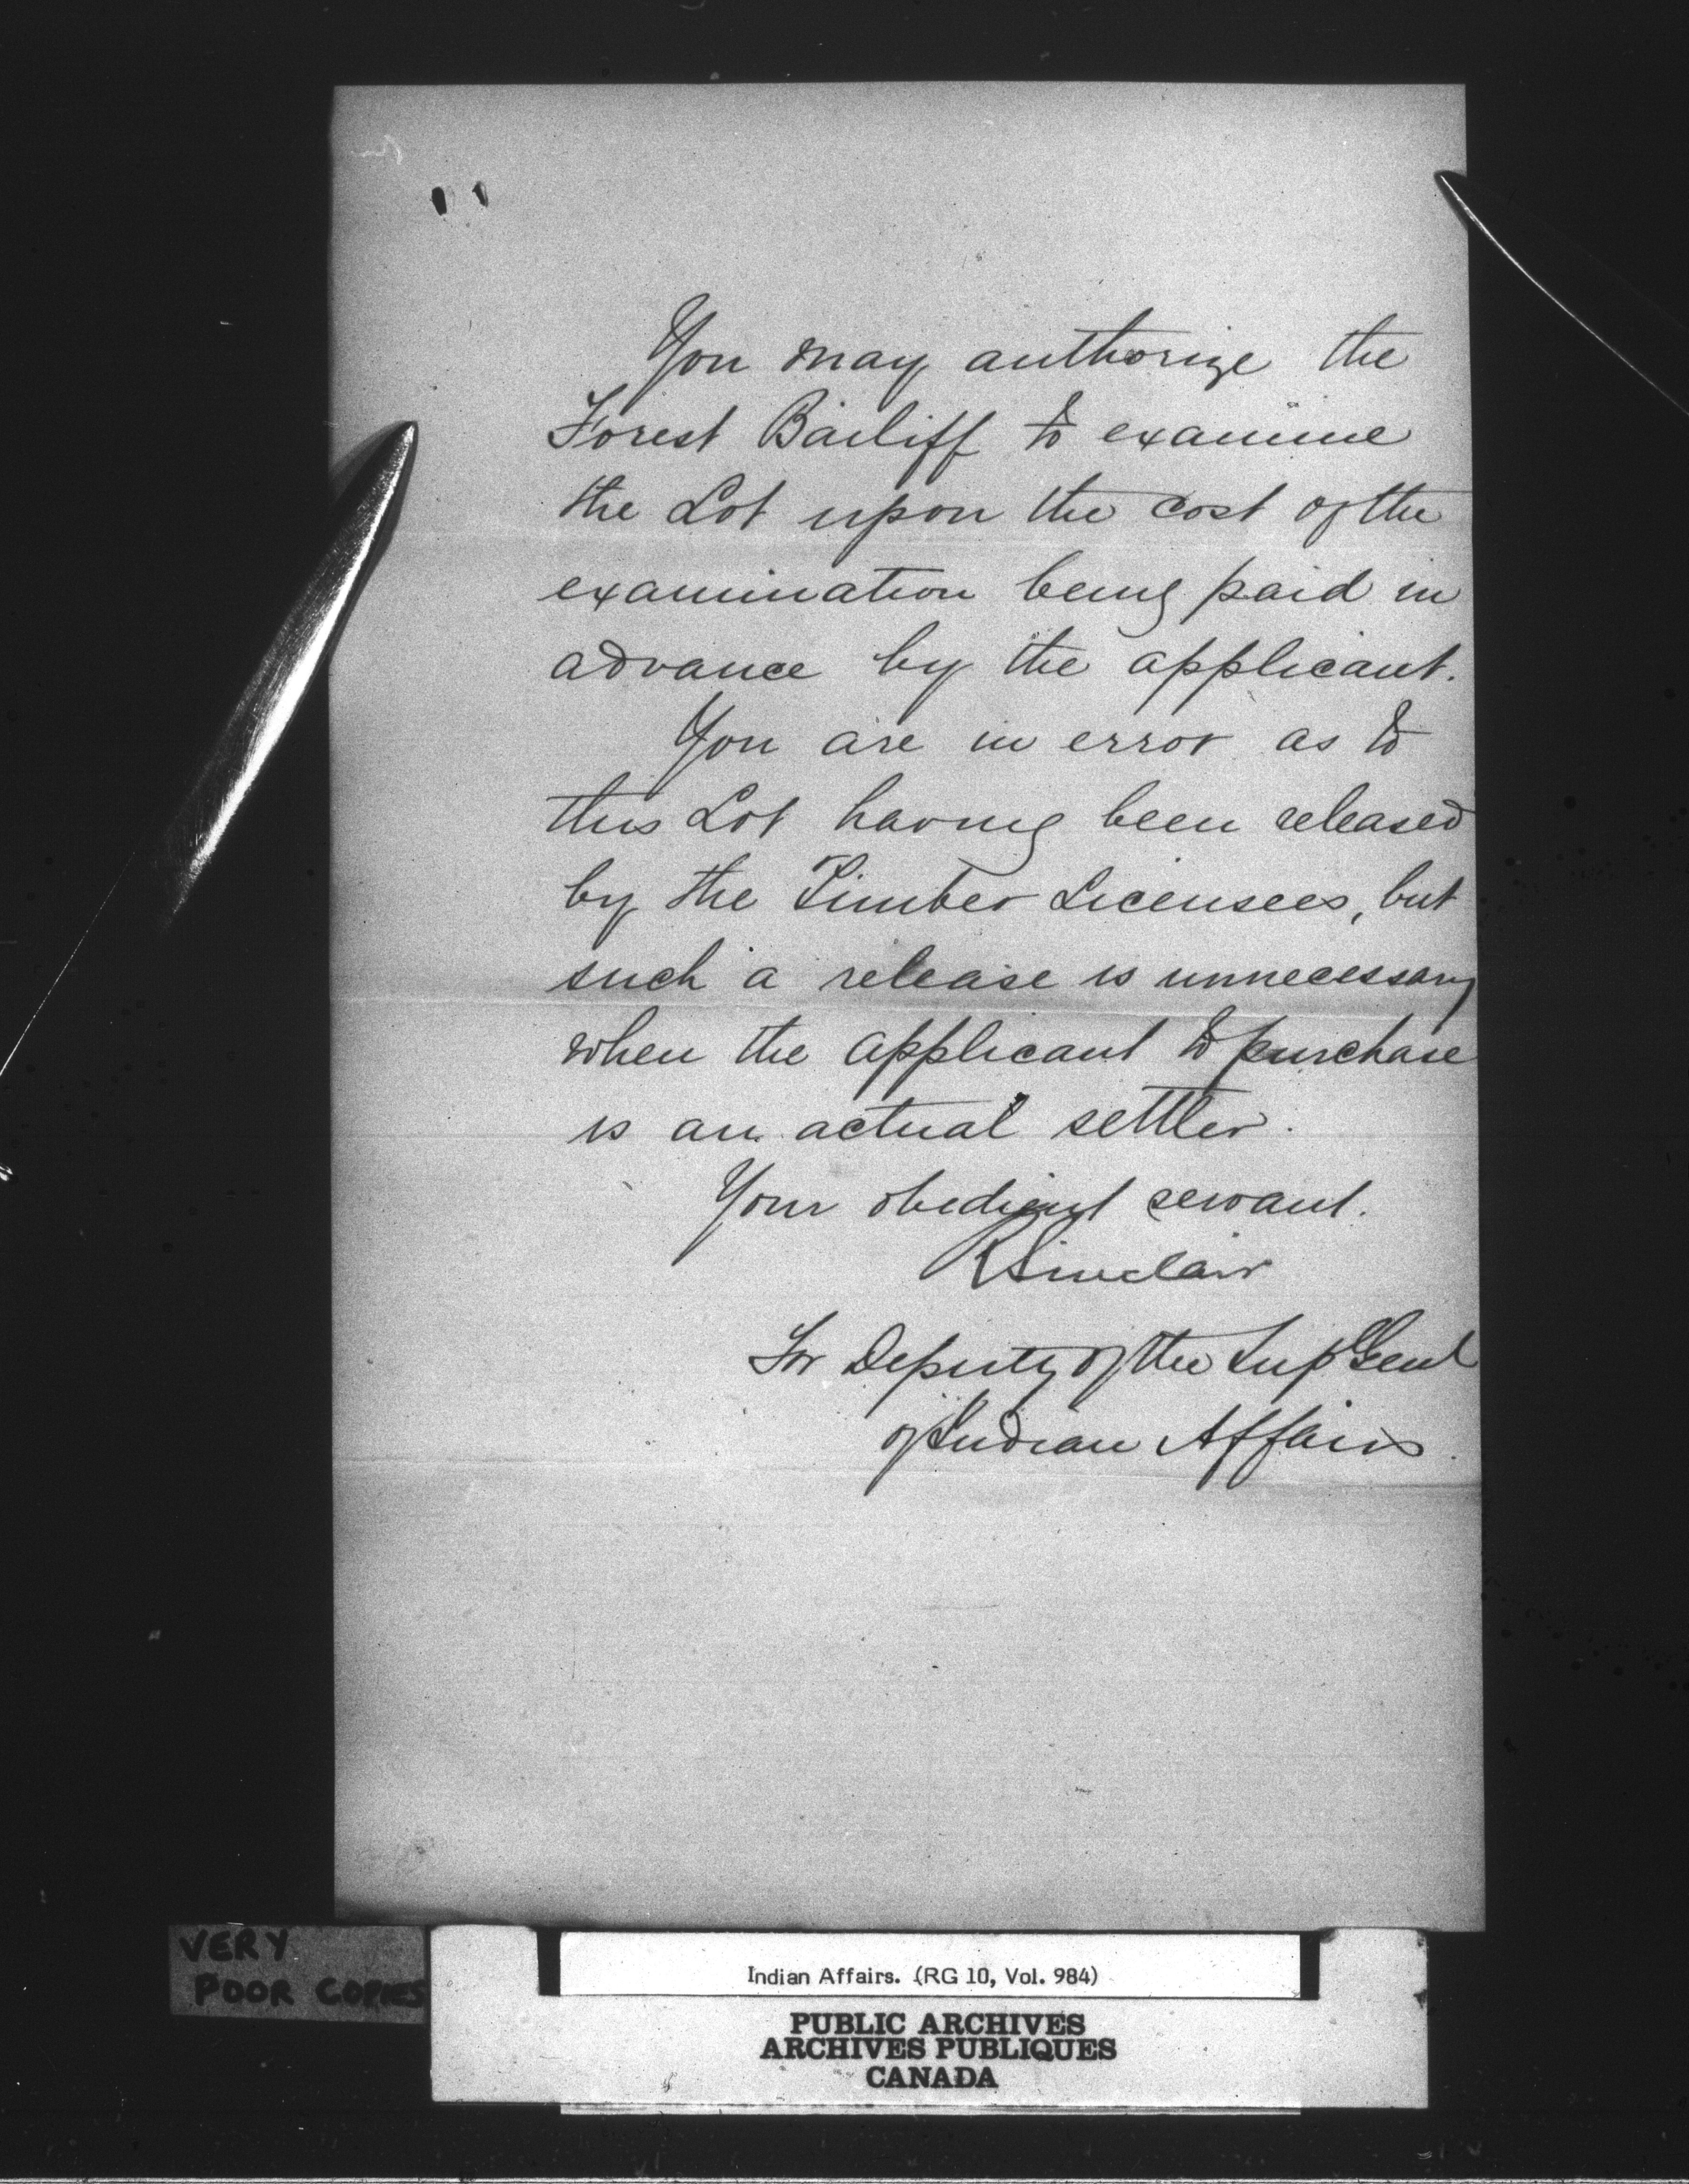 You may authorize the
Forest Bailiff to examine
the Lot upon the cost of the
examination being paid in
advance by the applicant.
You are in error as to
this Lot having been released
by the Timber Licensees, but
such a release is unnecessary
when the applicant to purchase
is an actual settler.
Your obedient servant.
R Sinclair
For Deputy of the Sup Genl
of Indian Affairs.
VERY
POOR COPIES
Indian Affairs. (RG 10, Vol. 984)
PUBLIC ARCHIVES
ARCHIVES PUBLIQUES
CANADA